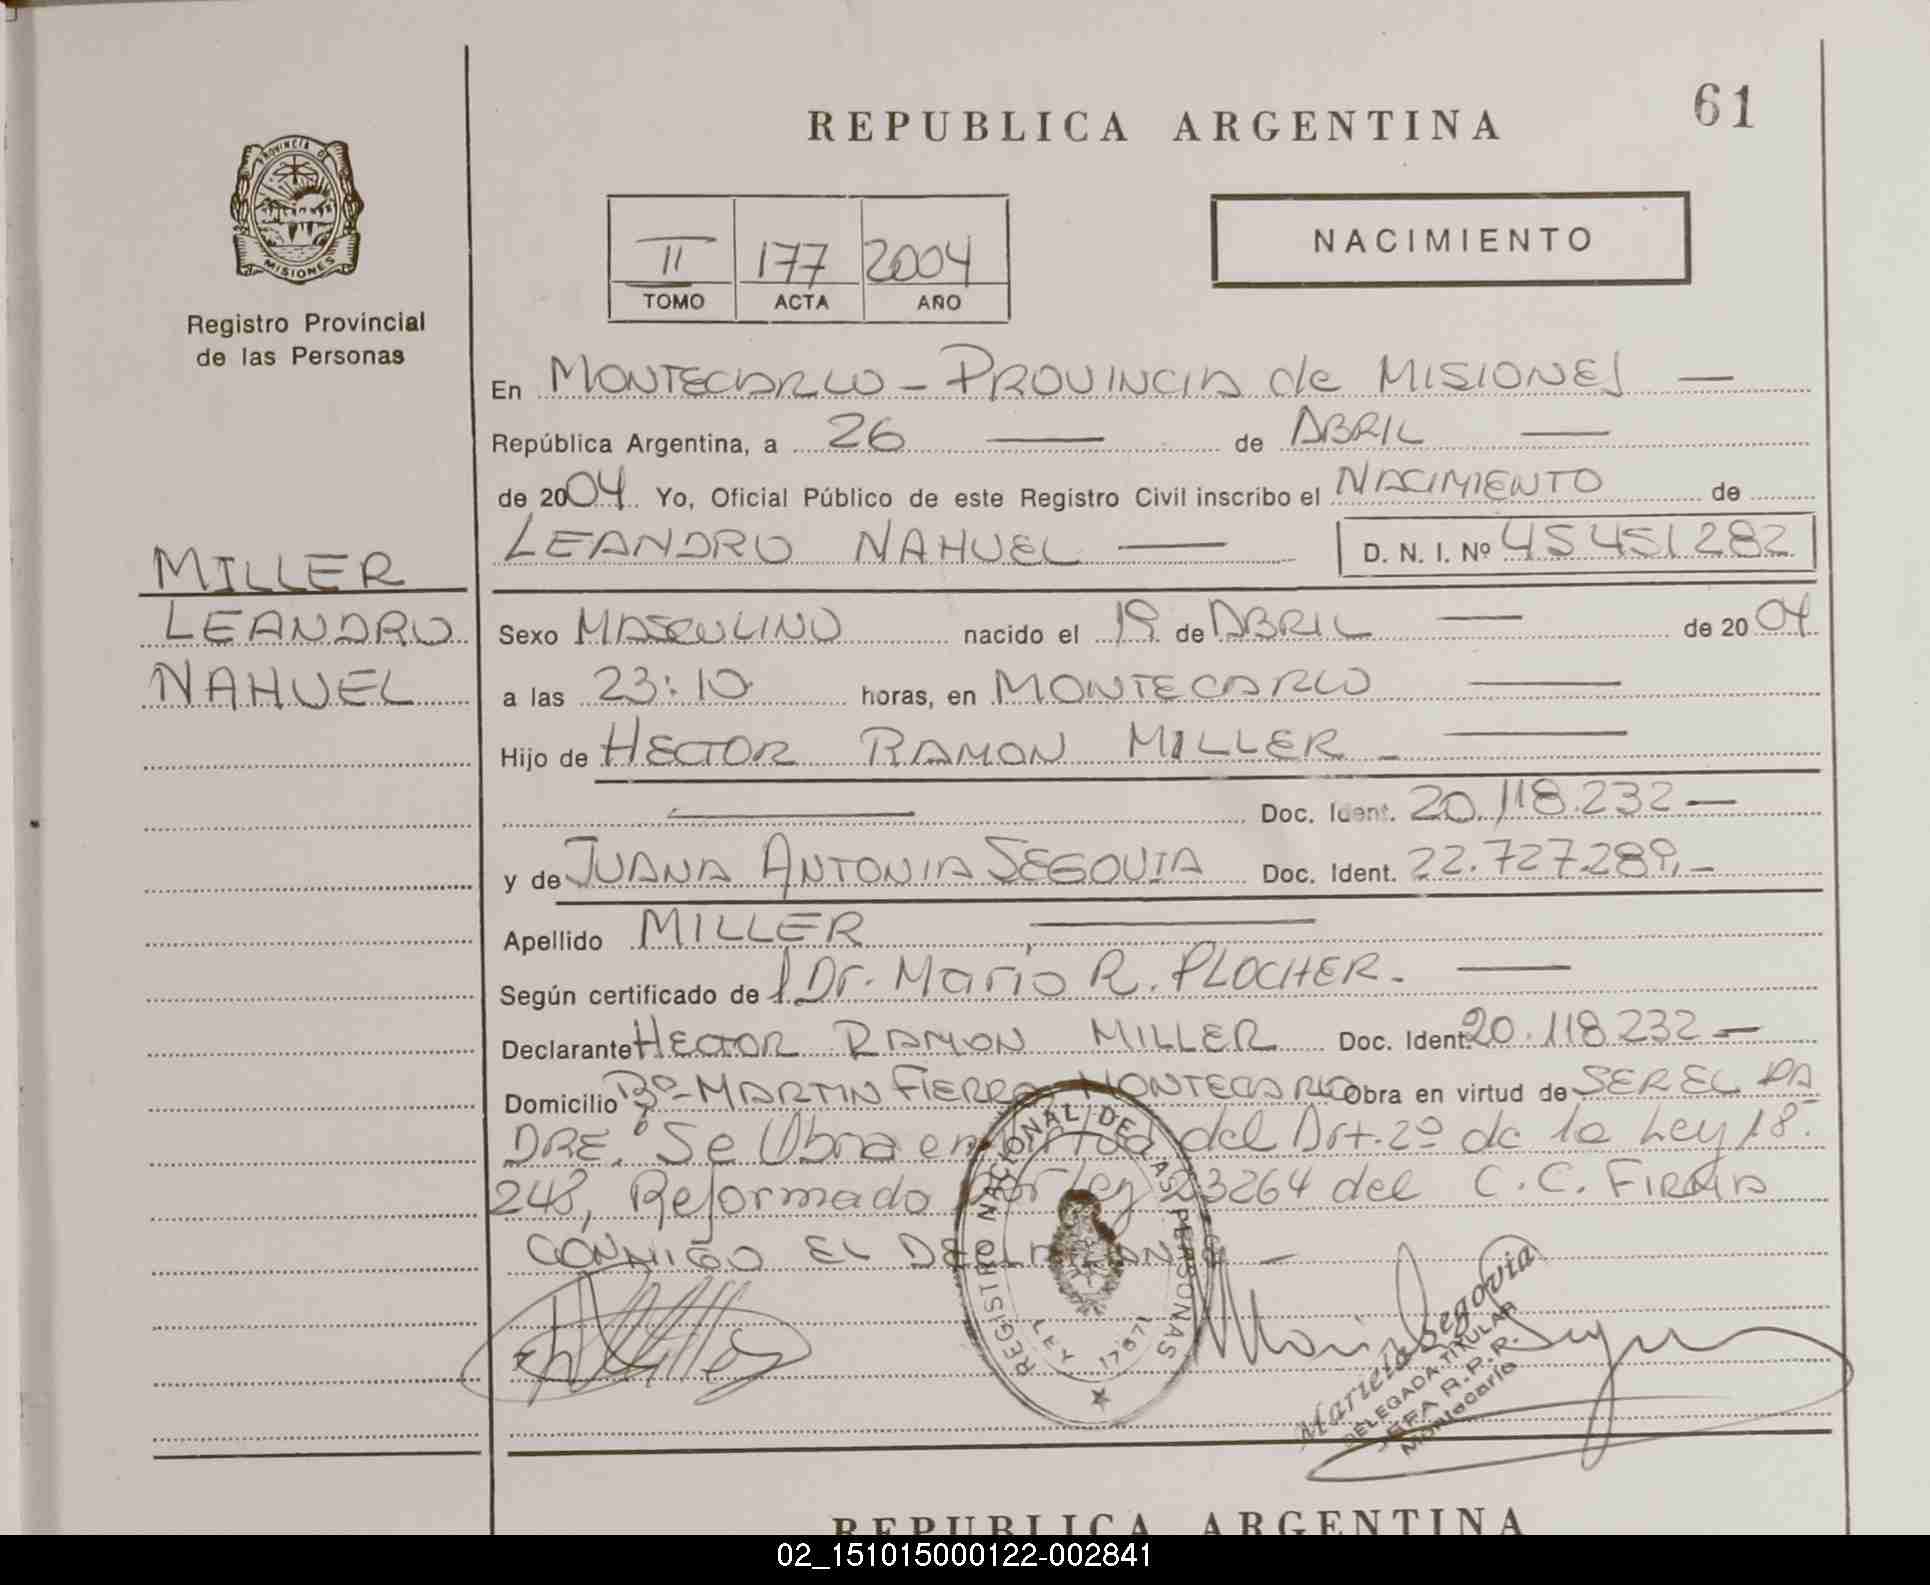 61
REPUBLICA ARGENTINA
NACIMIENTO
II 177 2004
TOMO ACTA AÑO
PROVINCIA DE MISIONES
Registro Provincial
de las Personas
En MONTECARLO - PROVINCIA de MISIONES —
República Argentina, a 26 — de ABRIL —
de 2004 Yo, Oficial Público de este Registro Civil inscribo el NACIMIENTO de
LEANDRO NAHUEL — D. N. I. Nº 45451282
MILLER
LEANDRO
NAHUEL
Sexo MASCULINO nacido el 19 de ABRIL — de 2004
a las 23:10 horas, en MONTECARLO —
Hijo de HECTOR RAMON MILLER - —
— Doc. Ident. 20.118.232 —
y de JUANA ANTONIA SEGOVIA Doc. Ident. 22.727.289.-
Apellido MILLER —
Según certificado de l Dr. Mario R. PLOCHER. —
Declarante HECTOR RAMON MILLER Doc. Ident. 20.118.232 —
Domicilio Bº- MARTIN FIERRO MONTECARLO Obra en virtud de SER EL PA
DRE. Se Obra en virtud del Art. 2º de la Ley 18.
248, Reformado por Ley 23264 del C. C. FIRMA
CONMIGO EL DECLARANTE —
REGISTRO NACIONAL DE LAS PERSONAS
LEY 17671
Segovia
DELEGADA TITULAR
JEFA R.P.P.
Montecarlo
REPUBLICA ARGENTINA
02_151015000122-002841